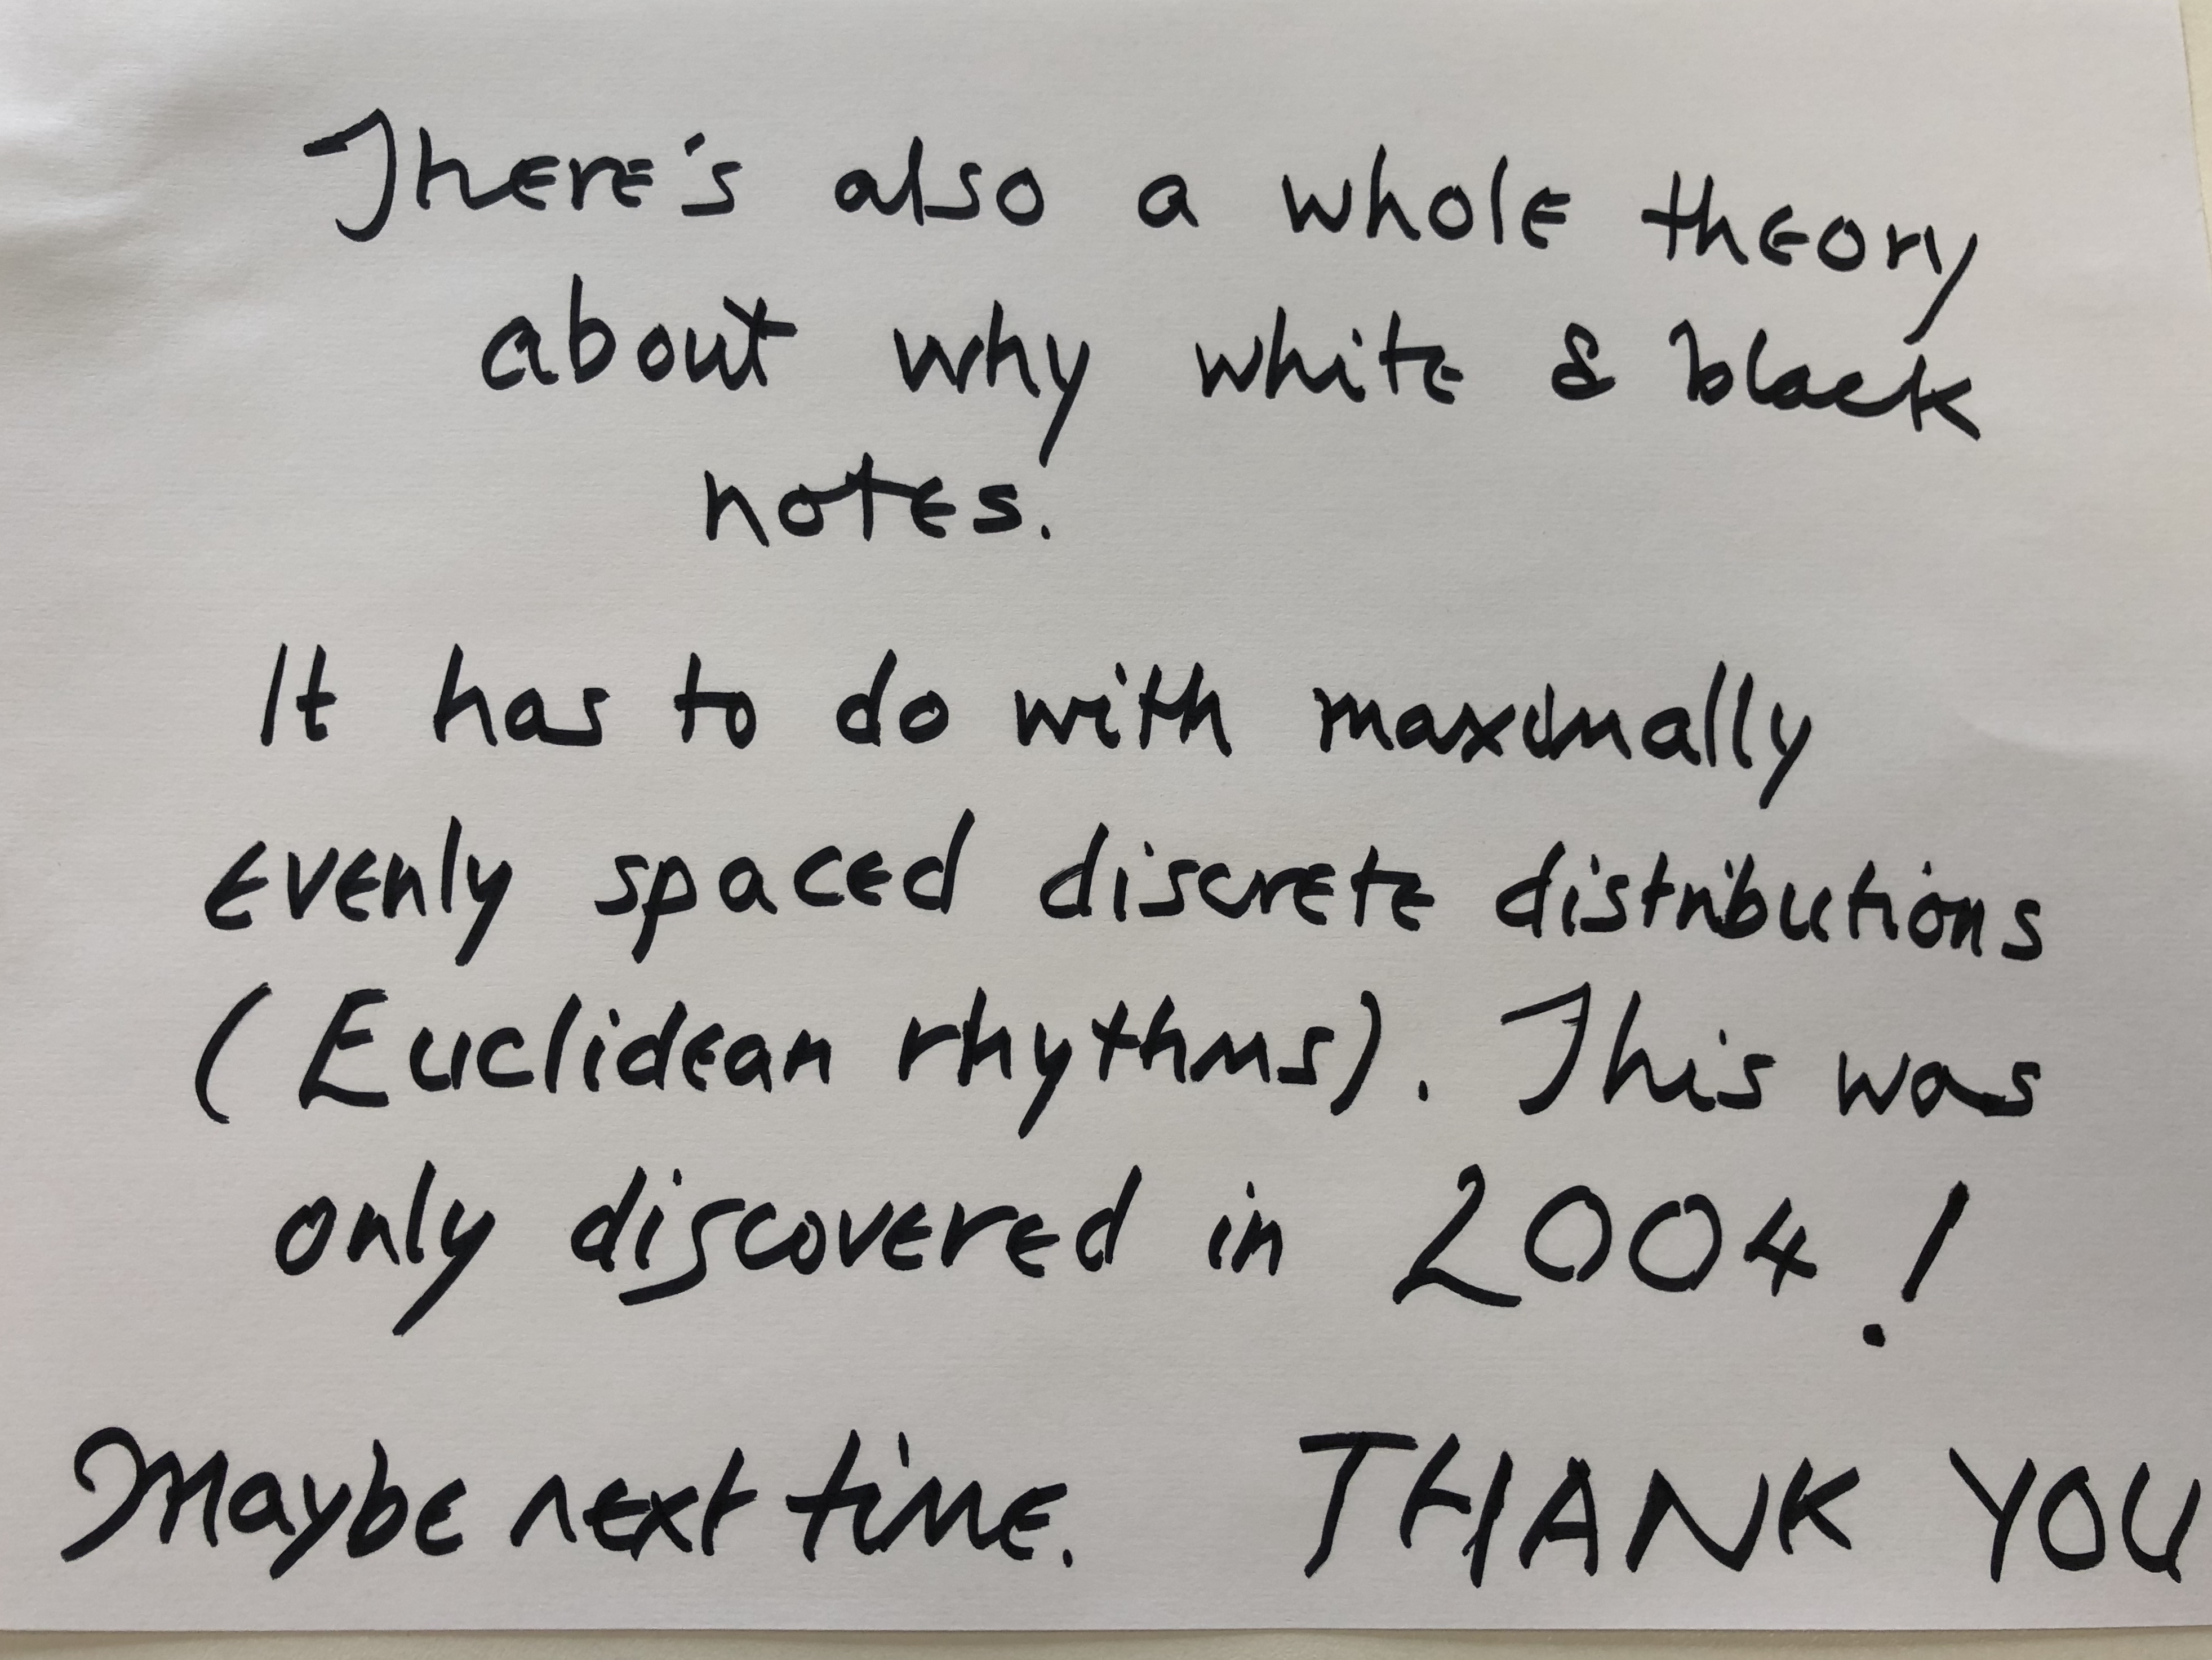 There's also a whole theory
about why white & black
notes.
It has to do with maximally
evenly spaced discrete distributions
(Euclidean rhythms). This was
only discovered in 2004!
Maybe next time. THANK YOU